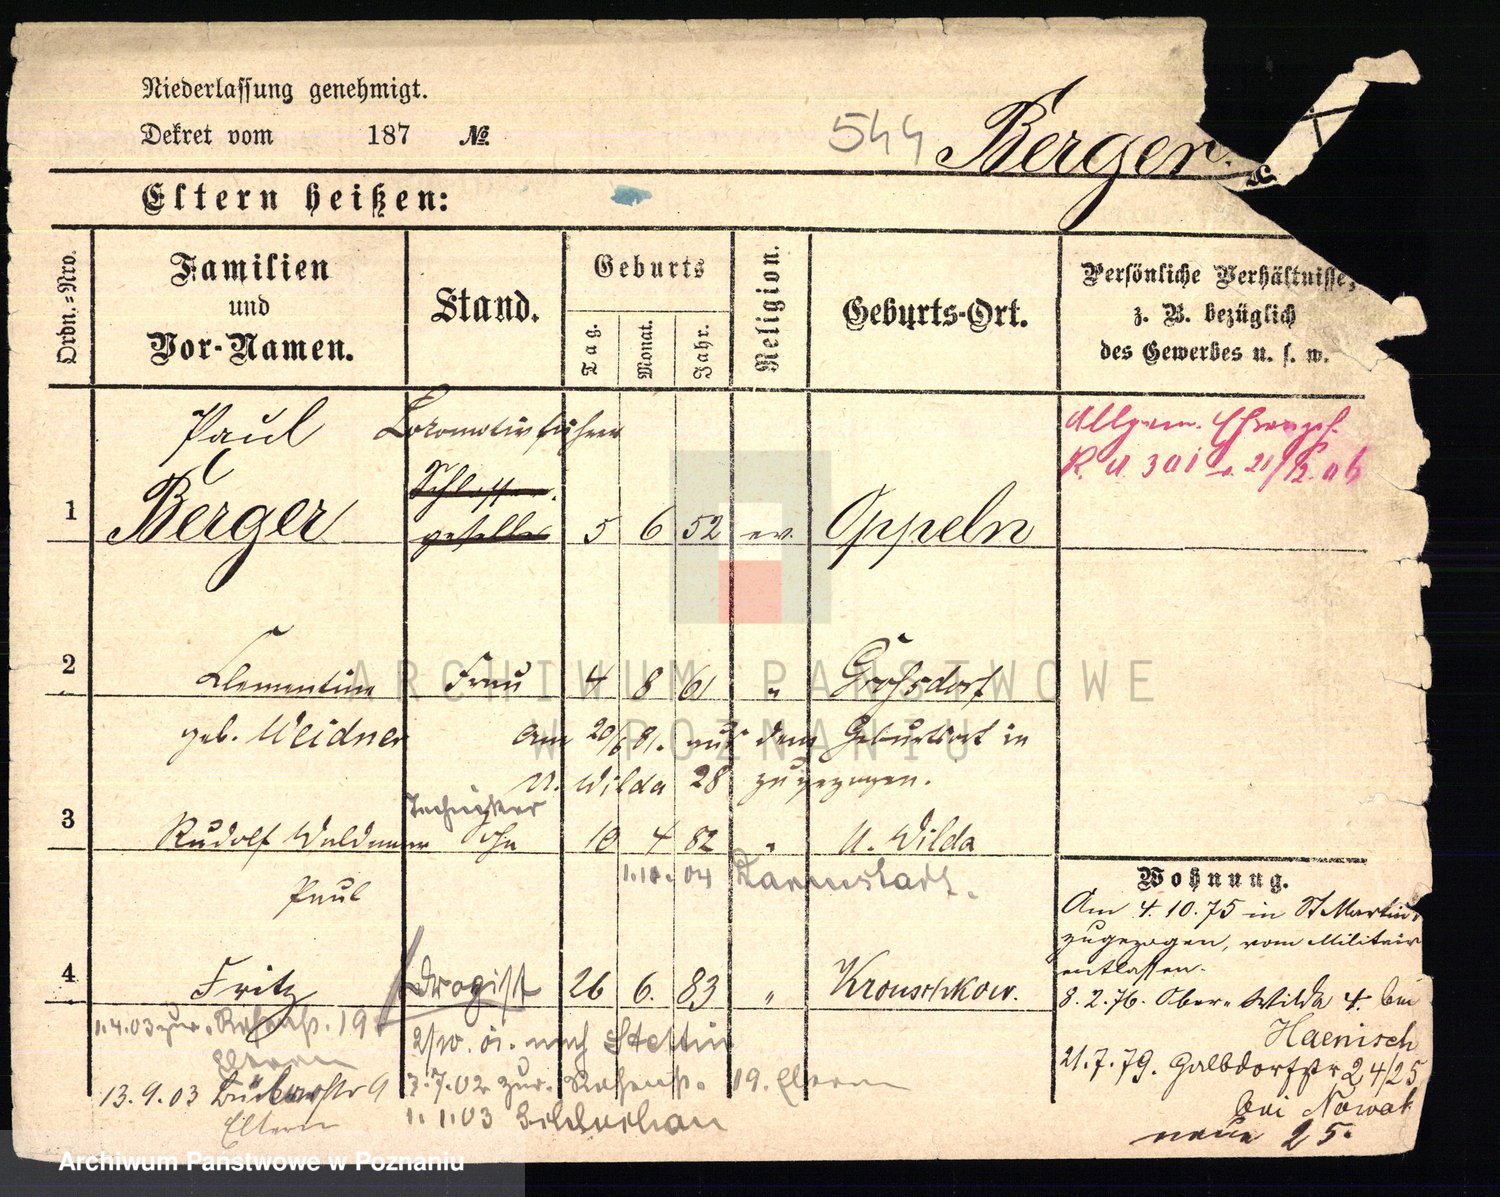 Niederlassung genehmigt.
Dekret vom 187 №.
544 Berger
Eltern heißen:
Ordn.=Nro.
Familien
und
Vor-Namen.
Stand.
Geburts
Tag.
Monat.
Jahr.
Religion.
Geburts-Ort.
Persönliche Verhältnisse,
z. B. bezüglich
des Gewerbes u. s. w.
Paul Lokomotivführer
1 Berger 5 6 52 ev. Oppeln
2 Clementine Frau 4 8 61 " Grohsdorf
geb. Weidner am 20/6 81. aus dem Geburtsort in
U. Wilda 28 zugezogen.
Techniker
3 Rudolf Waldemar Sohn 10 4 82 " U. Wilda
Paul
1.10.04
4 Fritz Drogist 26 6. 83 " Krouschkow.
1.4.03 zur. 19
Eltern
13.9.03 9
Eltern
2/10. 01. nach Stettin
7.7.02 zur. 19. Eltern
1.1.03
R. U. 301
Wohnung.
Am 4.10.75 in St Martin
zugezogen, vom Militair
entlassen.
8.2.76. Ober-Wilda 4. bei
Haenisch
21.7.79. Halbdorfstr 24/25
bei Nowak
neue 25.
ARCHIWUM PAŃSTWOWE
W POZNANIU
Archiwum Państwowe w Poznaniu